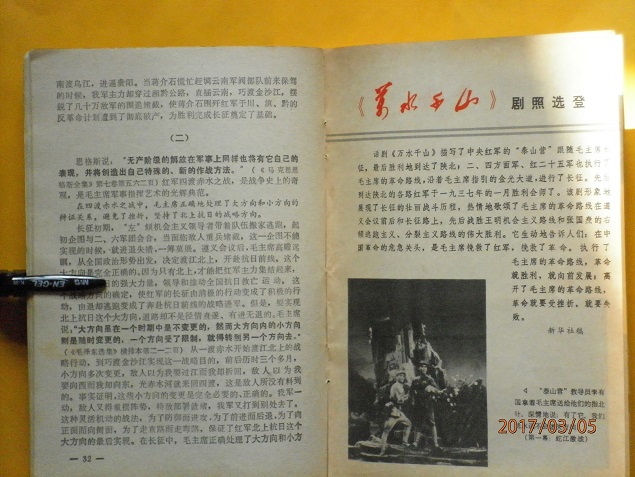 南渡乌江，进逼贵阳。当蒋介石慌忙赶调云南军阀部队前来保驾
的时候，我军主力却穿过湘黔公路，直插云南，巧渡金沙江，摆
脱了几十万敌军的围追堵截，使蒋介石围歼红军于川、滇、黔的
反革命计划遭到了彻底破产，为胜利完成长征奠定了基础。
（二）
恩格斯说：“无产阶级的解放在军事上同样也将有它自己的
表现，并将创造出自己特殊的、新的作战方法。”（《马克思恩
格斯全集》第七卷第五六二页）红军四渡赤水之战，是战争史上的奇
观，是毛主席军事指挥艺术的光辉典范。
在四渡赤水之战中，毛主席正确地处理了大方向和小方向
的辩证关系，避免了挫折，坚持了北上抗日的战略方向。
长征初期，“左”倾机会主义领导者带着队伍搬家逃跑，起
初企图与二、六军团会合，当面临敌人重兵堵截，这一企图不能
实现的时候，就进退失措，一筹莫展。遵义会议后，毛主席高瞻远
瞩，从全国政治形势出发，决定渡江北上，开赴抗日前线。这个
大方向是完全正确的。因为只有北上，才能把红军主力集结起来，
的强大力量，领导和推动全国抗日救亡运动。这
个战略方向的确定，使红军的长征由消极的行动变成了积极的行
动，由退却逃跑变成了奔赴抗日前线的战略进军。但是，要实现
北上抗日这个大方向，道路却不是径情直遂、有进无退的。毛主席
说，“大方向里在一个时期中是不变更的，然而大方向内的小方向
则是随时变更的，一个方向受了限制，就得转到另一个方向去。”
（《毛泽东选集》横排本第二一二页）从一渡赤水开始渡江北上的战
略行动，到巧渡金沙江实现这一战略目的，前后历时三个多月，
小方向多次变更。敌人以为我要过江而我却折回，敌人以为我
要向西而我却向东，光赤水河就来回四渡，这是敌人所没有料到
的。事实证明，这些小方向的变更是完全必要的、正确的。我军一
动，敌人又得重摆阵势，待敌部署就绪，我军又打到别处去了。
这种灵活机动的战法，为了前进而后退，为了向
正面而向侧面，为了走直路而走弯路，保证了红军北上抗日这个
大方向的最后实现。在长征中，毛主席正确处理了大方向和小方
— 32 —
《万水千山》剧照选登
话剧《万水千山》描写了中央红军的“泰山营”跟随毛主席
征，最后胜利地到达了陕北；二、四方面军、红二十五军也执行了
毛主席的革命路线，沿着毛主席指引的金光大道，进行了长征，先
到达陕北的各路红军于一九三七年的一月胜利会师了。该剧形象地
展现了长征的壮丽战斗历程，热情地歌颂了毛主席的革命路线在遵
义会议前后和长征路上，先后战胜王明机会主义路线和张国焘的右
倾逃跑主义、分裂主义路线的伟大胜利。它生动地告诉人们：在中
国革命的危急关头，是毛主席挽救了红军，挽救了革命。执行了
毛主席的革命路线，革命
就胜利，就向前发展；离
开了毛主席的革命路线，革
命就要受挫折，就要失
败。
新华社稿
“泰山营”教导员李有
国拿着毛主席送给他们的指北
针，深情地说：有了它，我们
（第一幕：虹江激战）
2017/03/05